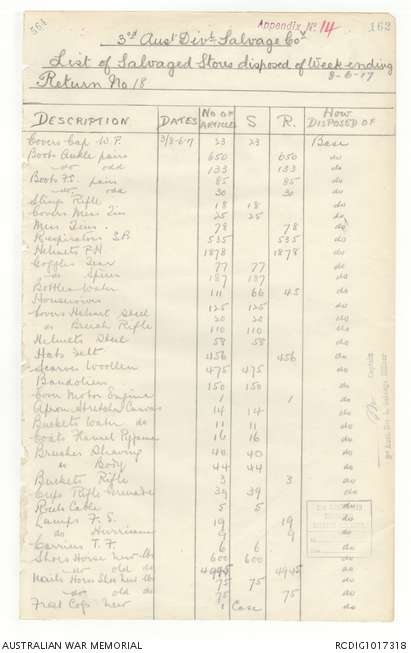 364
Appendix No 14
162
3rd Aust Divl Salvage Coy
List of Salvaged Stores disposed of Week ending
Return No 18
9-6-17
DESCRIPTION DATES No OF ARTICLES S R. HOW DISPOSED OF
Covers Cap W.P. 3/8-6-17 23 23 Base
Boots Ankle pairs 650 650 do
-do- odd 133 133 do
Boots F.S. pairs 85 85 do
-do- odd 30 30 do
Slings Rifle 18 18 do
Covers Mess Tin 25 25 do
Mess Tins 78 78 do
Respirators S.B. 535 535 do
Helmets P.H 1878 1878 do
Goggles Tear 77 77 do
do Spicer 187 187 do
Bottles Water 111 66 45 do
Housewives 125 125 do
Covers Helmet Steel 20 20 do
do Breech Rifle 110 110 do
Helmets Steel 58 58 do
Hats Felt 456 456 do
Scarves Woollen 475 475 do
Bandoliers 150 150 do
Motor Engine 1 1 do
Apron Stretcher Canvas 14 14 do
Buckets Water do 11 11 do
Coats Flannel Pyjama 16 16 do
Brushes Shaving 40 40 do
do Body 44 44 do
Buckets Rifle 3 3 do
Cups Rifle Grenade 39 39 do
Reels Cable 5 5 do
Lamps F.S. 19 19 do
do Hurricane 9 9 do
Carriers T.F. 6 6 do
Shoes Horse New lbs 600 600 do
-do- old do 4945 4945 do
Nails Horse Shoe New lbs 75 75 do
-do- old do 75 75 do
Frost Cogs New 1 Case do
Captain
3rd Aust. Div. Salvage Officer
AUSTRALIAN WAR MEMORIAL
RCDIG1017318